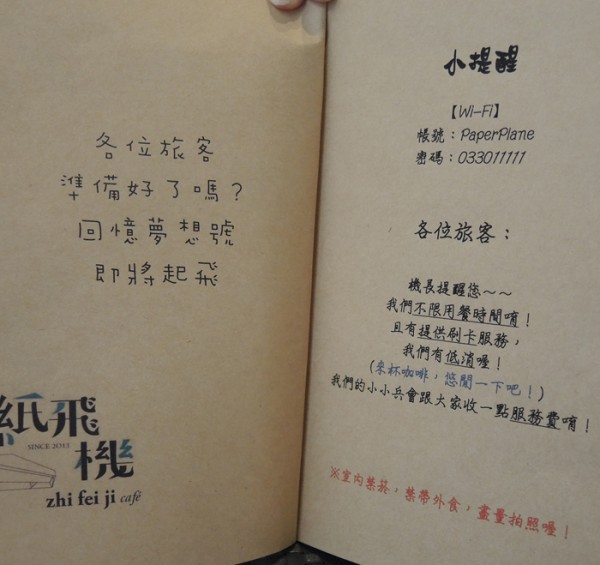 各位旅客
準備好了嗎？
回憶夢想號
即將起飛
紙飛機
SINCE 2013
zhi fei ji café
小提醒
【Wi-Fi】
帳號：PaperPlane
密碼：033011111
各位旅客：
機長提醒您～～
我們不限用餐時間唷！
且有提供刷卡服務，
我們有低消喔！
（來杯咖啡，悠閒一下吧！）
我們的小小兵會跟大家收一點服務費唷！
※室內禁菸，禁帶外食，盡量拍照喔！